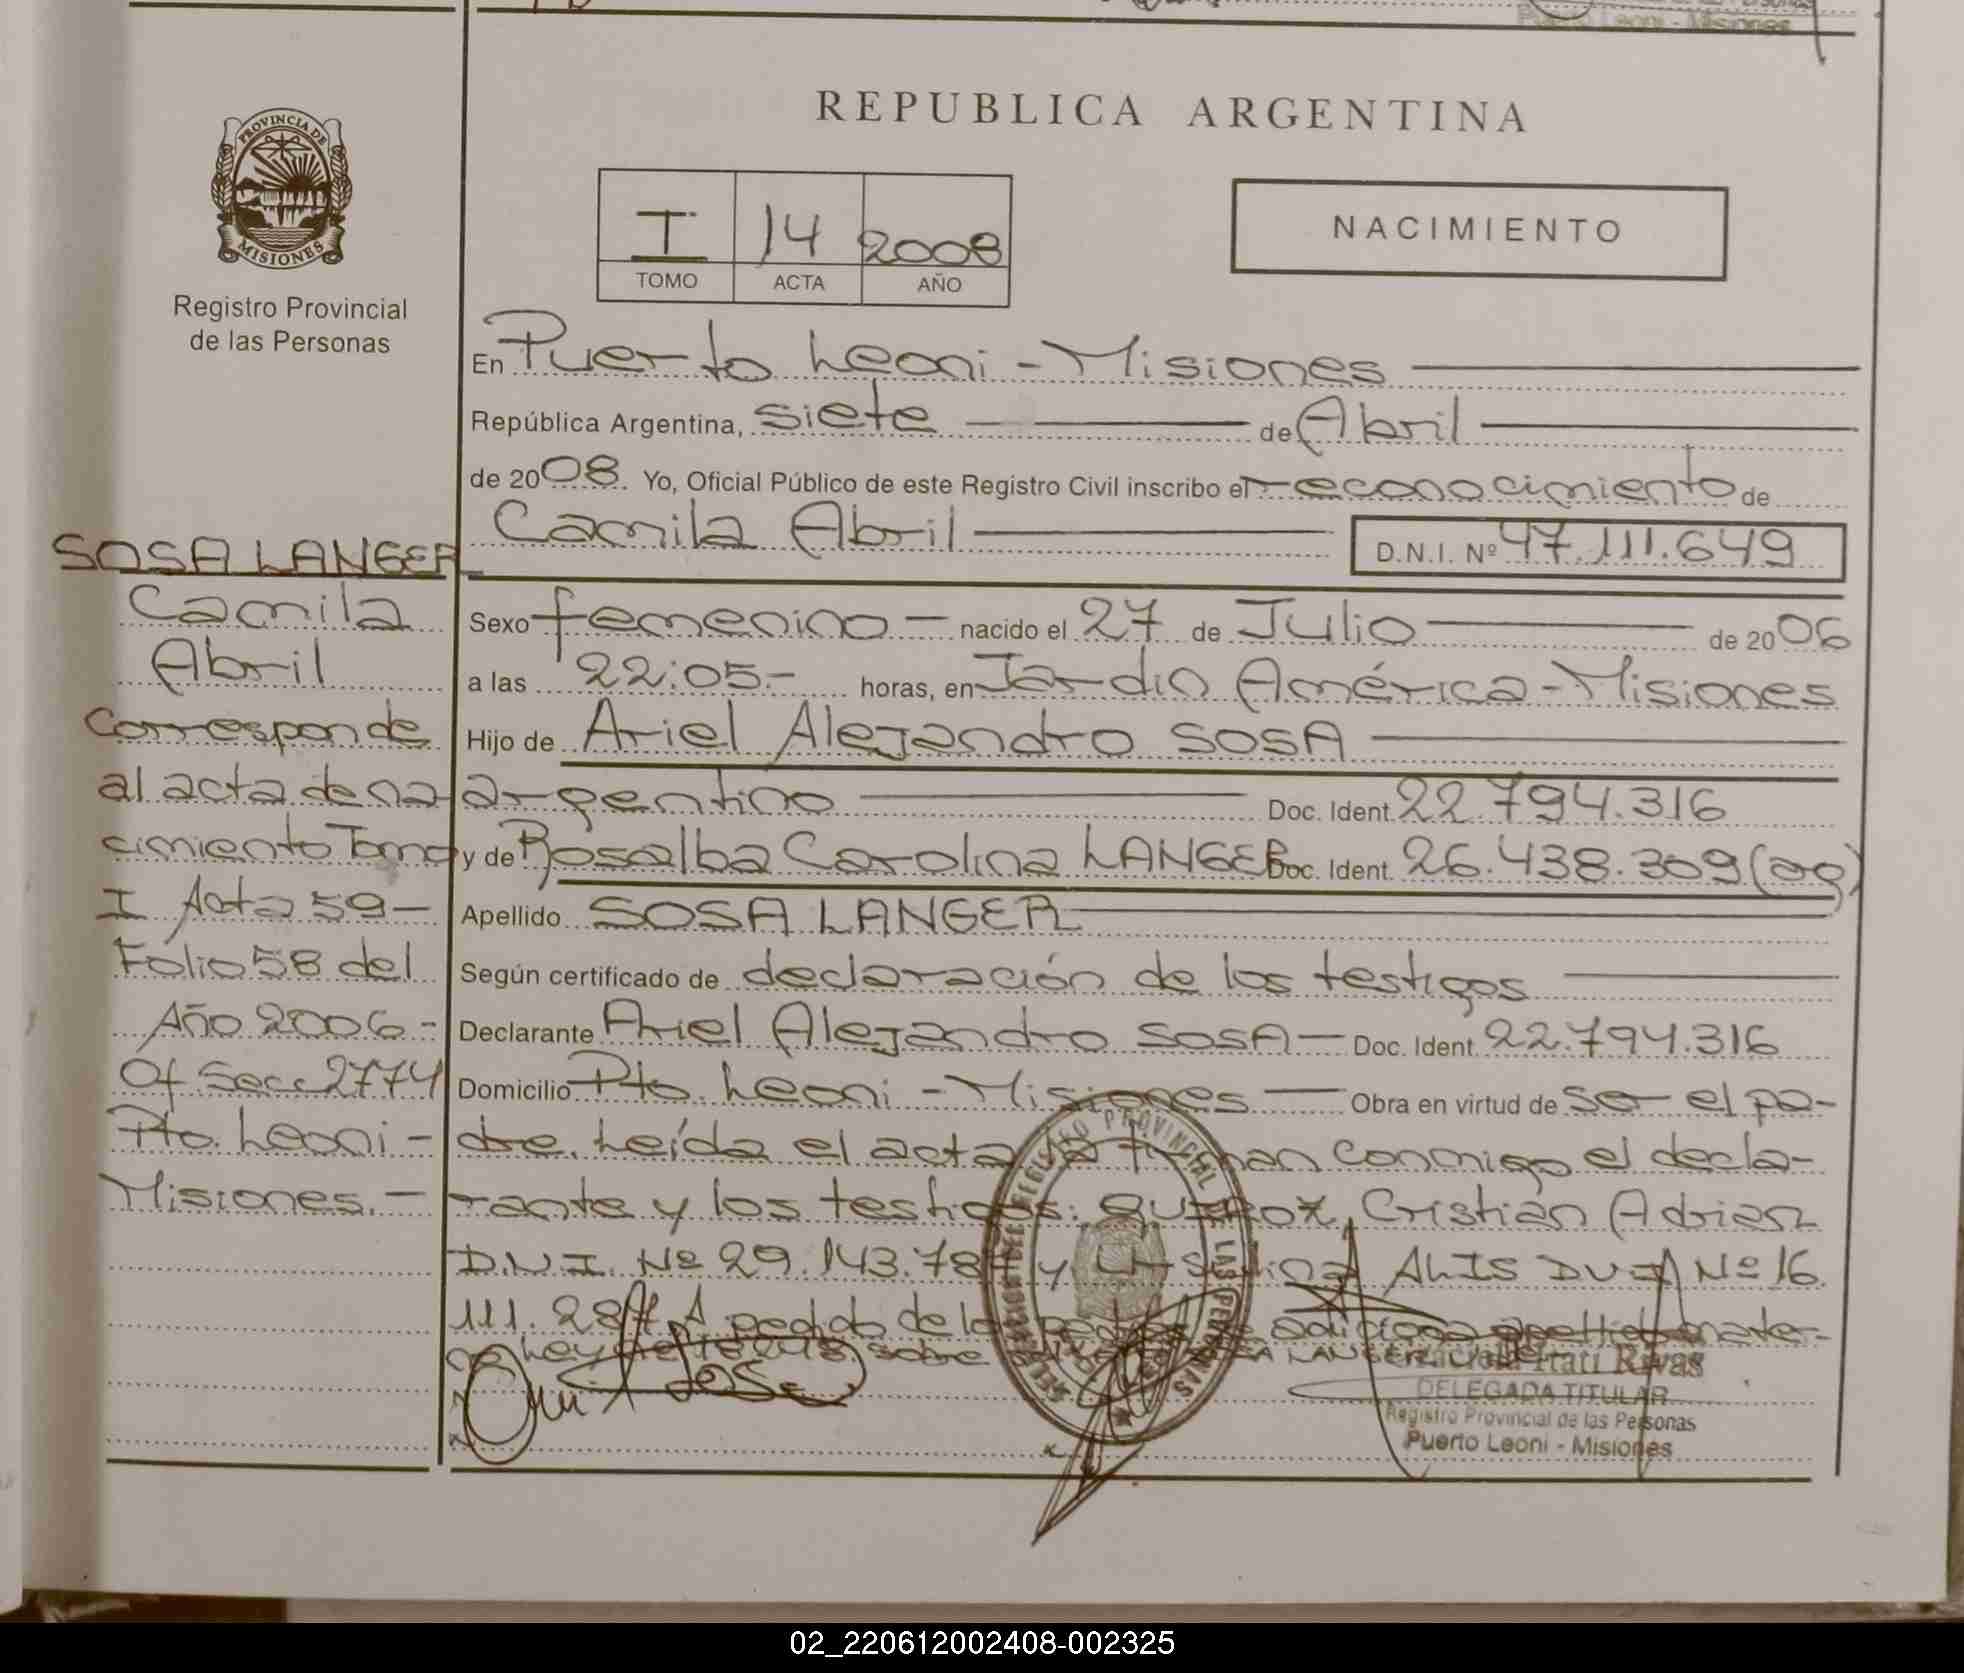 Puerto Leoni - Misiones
REPUBLICA ARGENTINA
PROVINCIA DE
MISIONES
Registro Provincial
de las Personas
I 14 2008
TOMO ACTA AÑO
NACIMIENTO
En Puerto Leoni - Misiones
República Argentina, siete de Abril
de 2008. Yo, Oficial Público de este Registro Civil inscribo el reconocimiento de
Camila Abril D.N.I. Nº 47.111.649
Sexo femenino - nacido el 27 de Julio de 2006
a las 22:05.- horas, en Jardín América - Misiones
Hijo de Ariel Alejandro SOSA
argentino Doc. Ident. 22.794.316
y de Rosalba Carolina LANGER Doc. Ident. 26.438.309 (ag)
Apellido SOSA LANGER
Según certificado de declaración de los testigos
Declarante Ariel Alejandro SOSA - Doc. Ident. 22.794.316
Domicilio Pto. Leoni - Misiones - Obra en virtud de ser el pa-
dre. Leída el acta la firman conmigo el decla-
rante y los testigos: Cristián Adrian
D.N.I. Nº 29.143.78 y ALIS DNI Nº 16.
111.287 A pedido de adiciona apellido mater-
no Ley sobre
SOSA LANGER
Camila
Abril
Corresponde
al acta de na-
cimiento Tomo
I Acta 59 -
Folio 58 del
Año 2006.-
Of. Secc 2774
Pto. Leoni -
Misiones. -
REGISTRO PROVINCIAL DE LAS PERSONAS
Itatí Rivas
DELEGADA TITULAR
Registro Provincial de las Personas
Puerto Leoni - Misiones
02_220612002408-002325